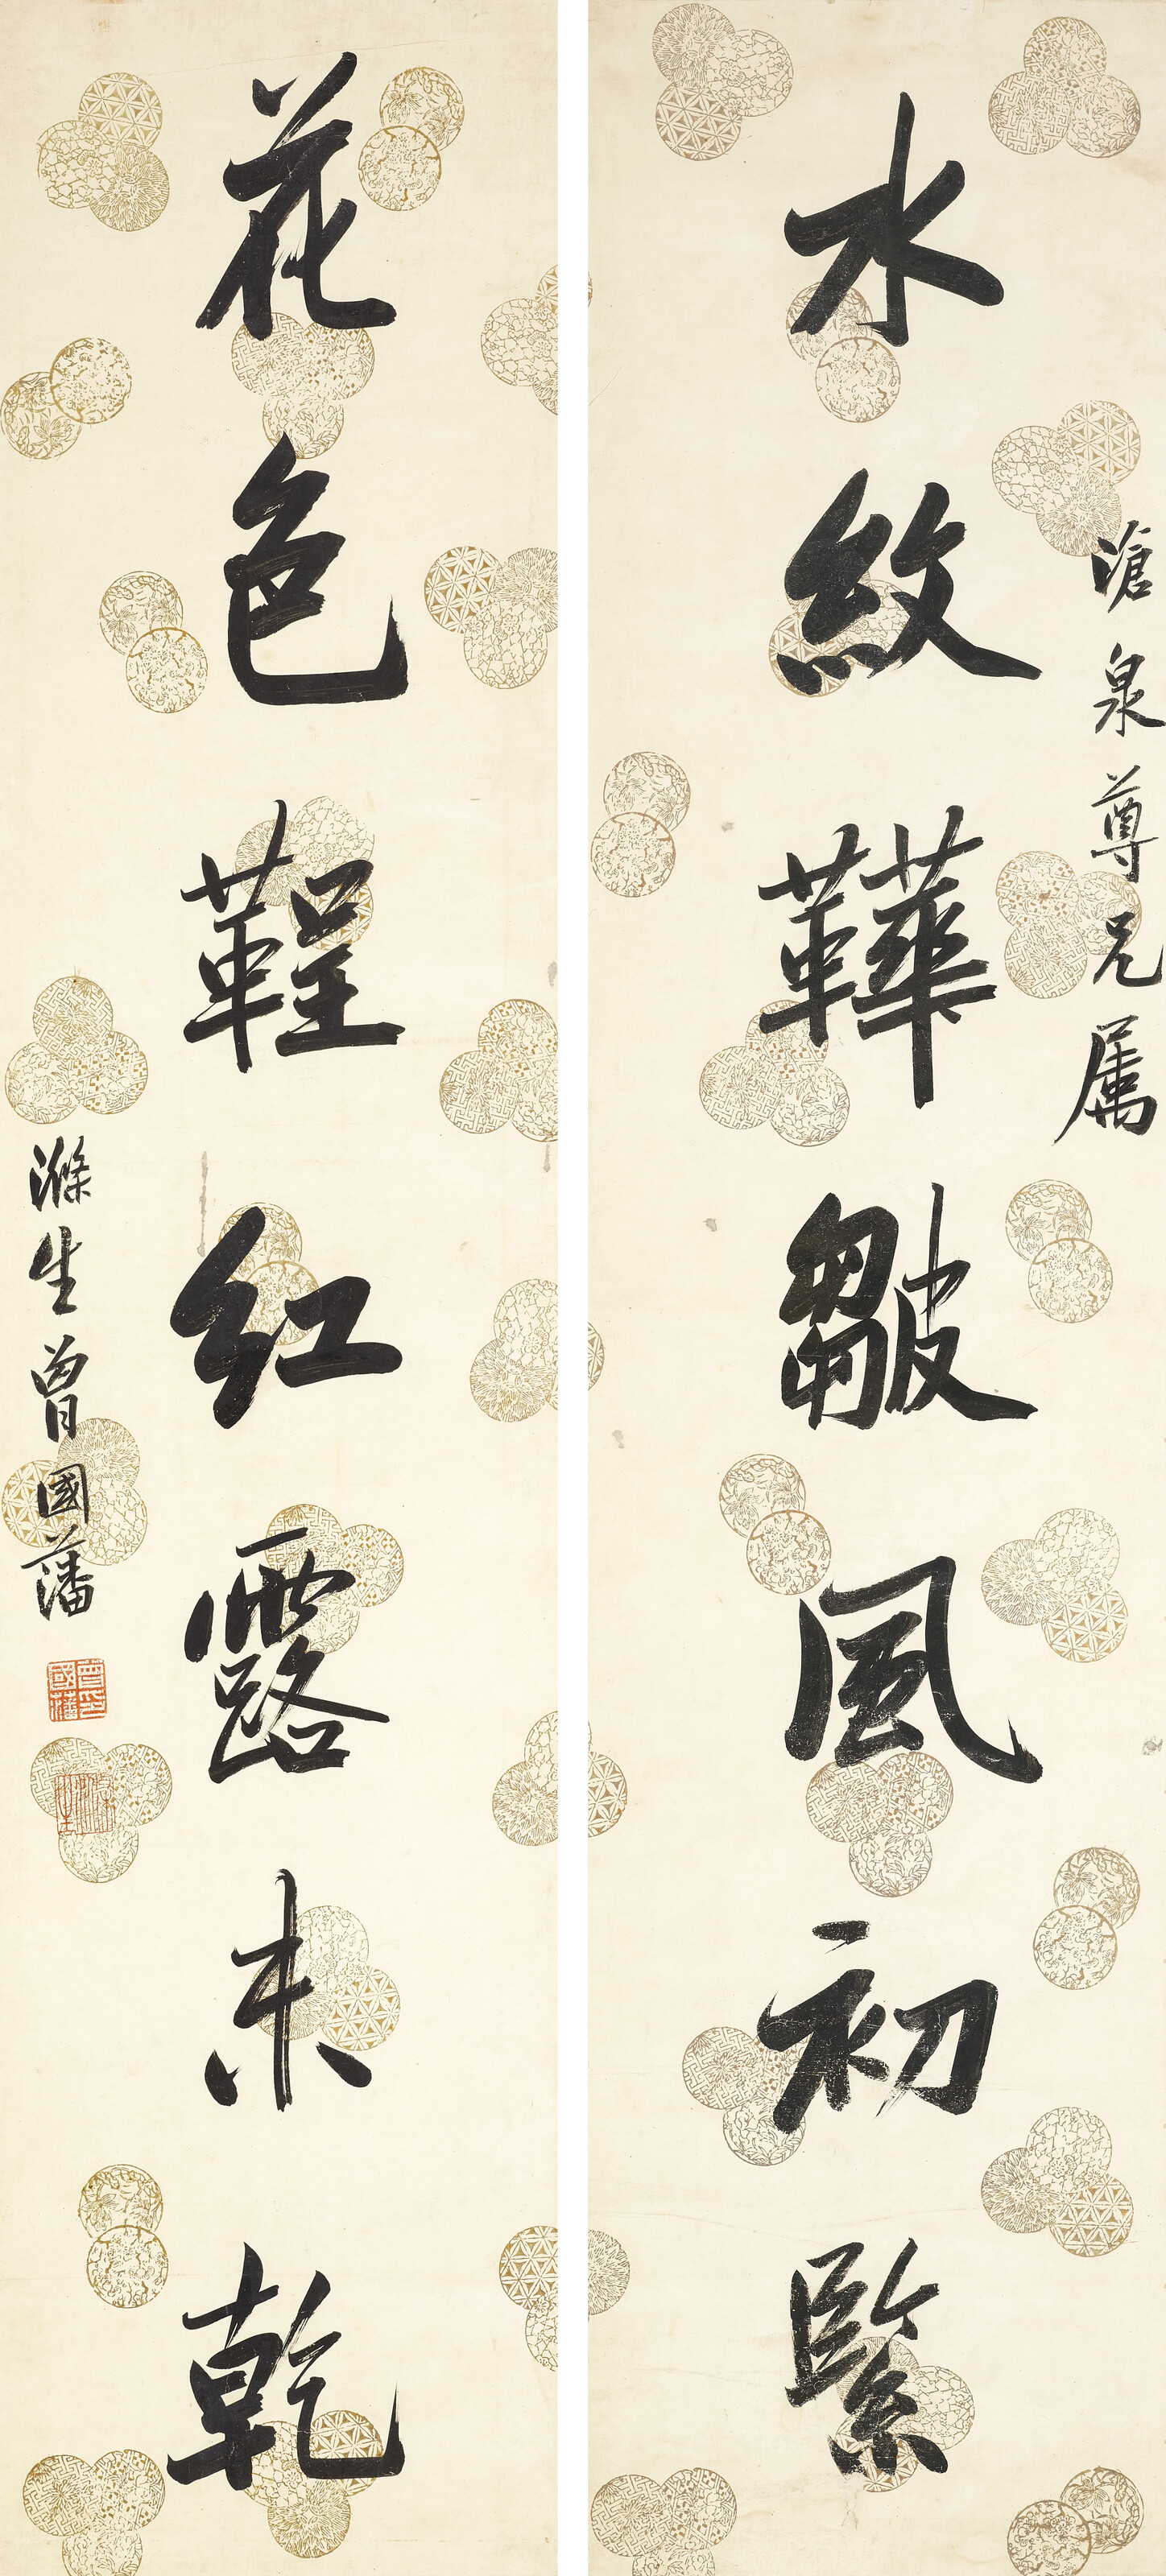 滄泉尊兄属
水紋鞾皺風初緊
花色鞓紅露未乾
滌生曾國藩
曾印國藩